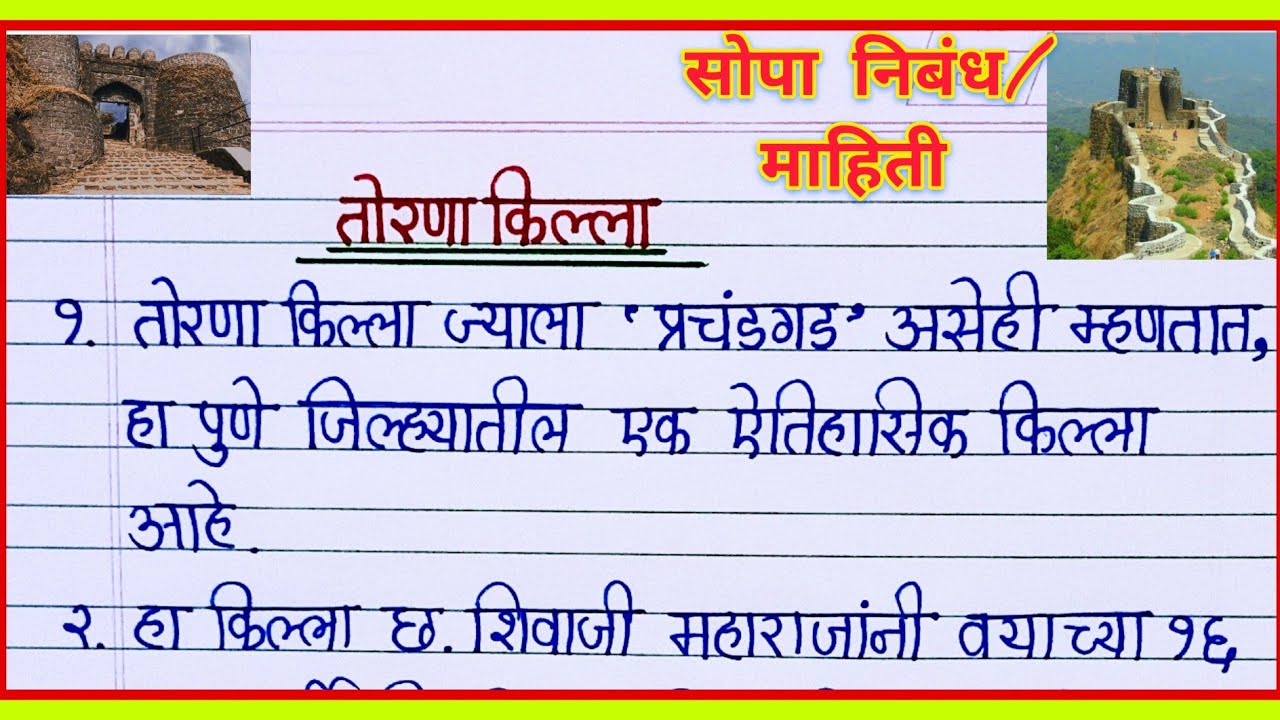 सोपा निबंध/
माहिती
तोरणा किल्ला
१. तोरणा किल्ला ज्याला 'प्रचंडगड' असेही म्हणतात,
हा पुणे जिल्ह्यातील एक ऐतिहासिक किल्ला
आहे.
२. हा किल्ला छ. शिवाजी महाराजांनी वयाच्या १६